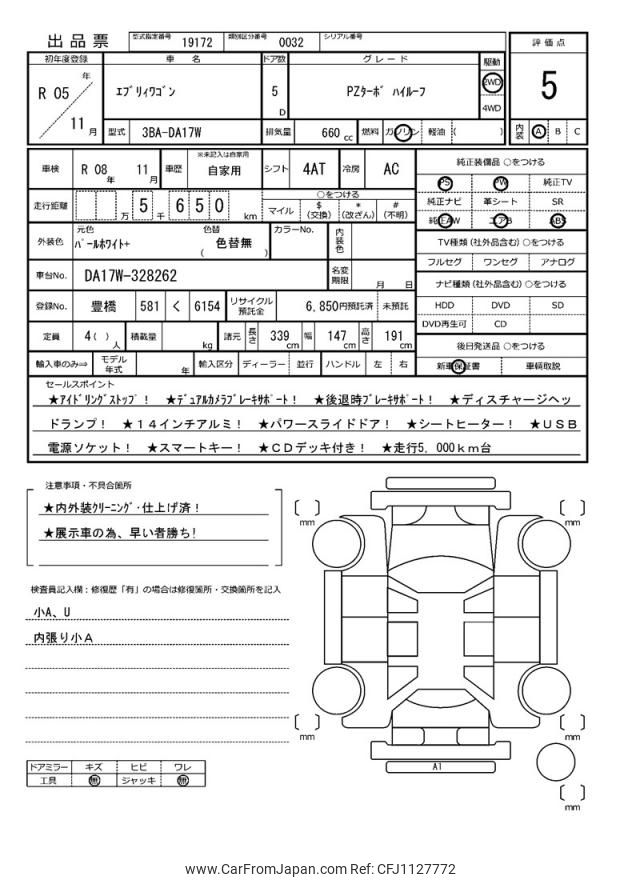 出品票
型式指定番号 19172 類別区分番号 0032 シリアル番号
初年度登録 車名 ドア数 グレード 駆動
評価点
R 05 年
11 月
ｴﾌﾞﾘｨﾜｺﾞﾝ
5 D
PZﾀｰﾎﾞ ﾊｲﾙｰﾌ
2WD
4WD
5
型式 3BA-DA17W 排気量 660 cc 燃料 ガソリン 軽油 ( )
内装 A B C
車検 R 08 年 11 月 車歴 ※未記入は自家用 自家用 シフト 4AT 冷房 AC
純正装備品 ○をつける
PS PW 純正TV
純正ナビ 革シート SR
純正AW エアB ABS
走行距離 万 5 千 6 5 0 km
○をつける
マイル $ (交換) * (改ざん) # (不明)
外装色 元色 ﾊﾟｰﾙﾎﾜｲﾄ+ 色替 ( 色替無 ) カラーNo. 内装色
TV種類 (社外品含む) ○をつける
フルセグ ワンセグ アナログ
車台No. DA17W-328262 名変期限 月 日
ナビ種類 (社外品含む) ○をつける
HDD DVD SD
DVD再生可 CD
登録No. 豊橋 581 く 6154 リサイクル預託金 6,850円預託済 未預託
定員 4( ) 人 積載量 kg 諸元 長さ 339 cm 幅 147 cm 高さ 191 cm
後日発送品 ○をつける
新車保証書 車輌取説
輸入車のみ⇒ モデル年式 年 輸入区分 ディーラー 並行 ハンドル 左 右
セールスポイント
★ｱｲﾄﾞﾘﾝｸﾞｽﾄｯﾌﾟ！ ★ﾃﾞｭｱﾙｶﾒﾗﾌﾞﾚｰｷｻﾎﾟｰﾄ！ ★後退時ﾌﾞﾚｰｷｻﾎﾟｰﾄ！ ★ディスチャージヘッ
ドランプ！ ★１４インチアルミ！ ★パワースライドドア！ ★シートヒーター！ ★ＵＳＢ
電源ソケット！ ★スマートキー！ ★ＣＤデッキ付き！ ★走行5，000ｋｍ台
注意事項・不具合箇所
★内外装ｸﾘｰﾆﾝｸﾞ・仕上げ済！
★展示車の為、早い者勝ち!
検査員記入欄：修復歴「有」の場合は修復箇所・交換箇所を記入
小A、U
内張り小Ａ
mm
mm
mm
mm
mm
A1
ドアミラー キズ ヒビ ワレ
工具 無 ジャッキ 無
www.CarFromJapan.com Ref: CFJ1127772